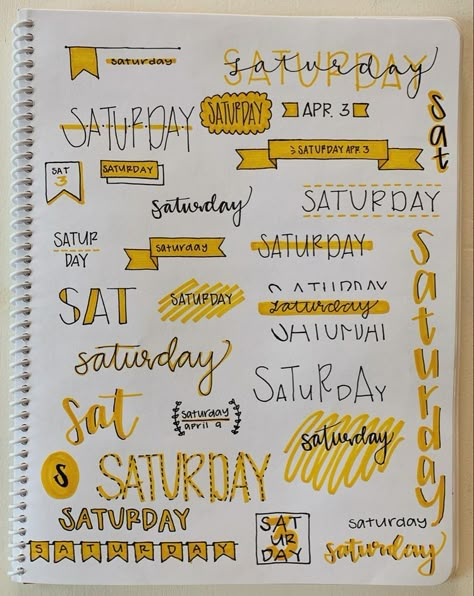 saturday
SATURDAY
saturday
SATURDAY
SATURDAY
APR. 3
sat
SATURDAY APR 3
SAT
3
SATURDAY
saturday
SATURDAY
SATUR
DAY
saturday
SATURDAY
saturday
SAT
SATURDAY
SATURDAY
saturday
SATURDAY
saturday
SATURDAY
sat
saturday
april 9
saturday
S
SATURDAY
SATURDAY
SAT
UR
DAY
saturday
SATURDAY
saturday